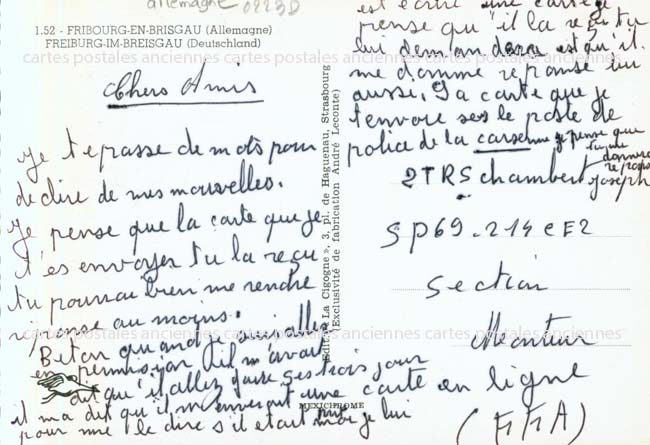 allemagne 0223D
1.52 - FRIBOURG-EN-BRISGAU (Allemagne)
FREIBURG-IM-BREISGAU (Deutschland)
cartes postales anciennes cartes postales anciennes cartes postales anciennes
Chers Amis
Je t epasse de mots pour
de dire de mes nouvelles.
Je pense que la carte que je
t'es envoyer tu la reçu
tu pourrai bien me rendre
réponse au moins.
Beton quand je suis aller
en permission il m'avait
dit qu'il allez faire ses trois jour
il m'a dit qu'il m'enverait une carte
pour me le dire s'il etait je lui
est ecrire une carte je
pense qu'il la reçu tu
lui demandera est qu'il
me donne reponse lui
aussi. Sa carte que je
t'envoie ses le poste de
police de la caserne je pense que
tu me
donnera
reponse
Joseph
2TRS chambert
SP69.214 CE2
section
Monteur
en ligne
(FFA)
Edit. « La Cigogne », 3, pl. de Haguenau, Strasbourg
(Exclusivité de fabrication André Leconte)
MEXICHROME
cartes postales anciennes cartes postales anciennes cartes postales anciennes